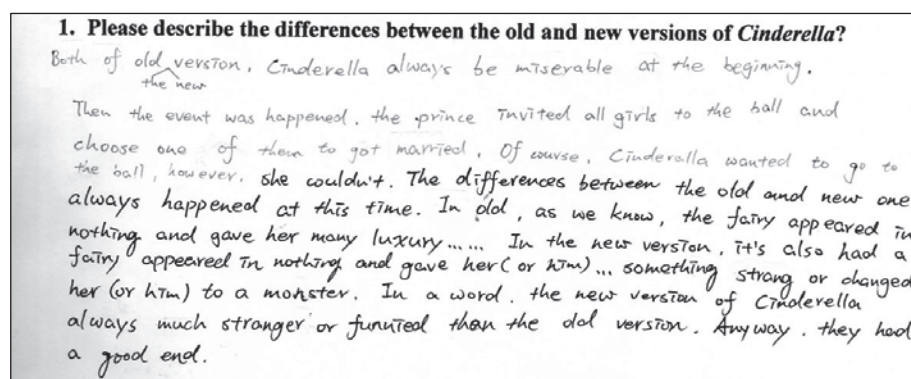 1. Please describe the differences between the old and new versions of Cinderella?
Both of old version, Cinderella always be miserable at the beginning.
the new
Then the event was happened, the prince invited all girls to the ball and
choose one of them to got married. Of course, Cinderalla wanted to go to
the ball, however, she couldn't. The differences between the old and new one
always happened at this time. In old, as we know, the fairy appeared in
nothing and gave her many luxury...... In the new version, it's also had a
fairy appeared in nothing and gave her (or him)... something strang or changed
her (or him) to a monster. In a word, the new version of Cinderella
always much stranger or funnied than the old version. Anyway, they had
a good end.